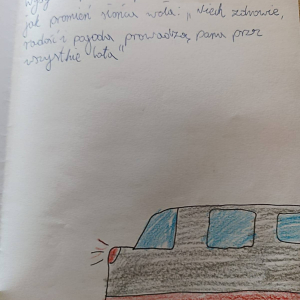 jak promień słońca woła: „Niech zdrowie,
radość i pogoda prowadzą pana przez
wszystkie lata"